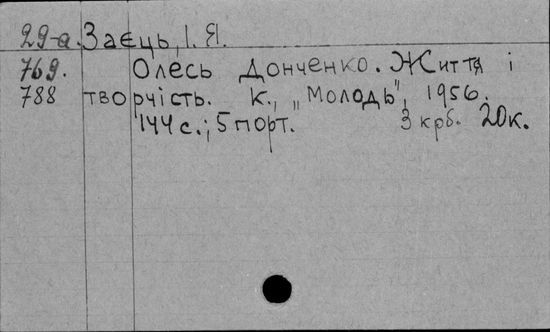 29-а. Заєць, І. Я.
769. Олесь Донченко. Життя і
788 творчість. К., „Молодь", 1956.
144 с.; 5 порт. 3 крб. 20к.